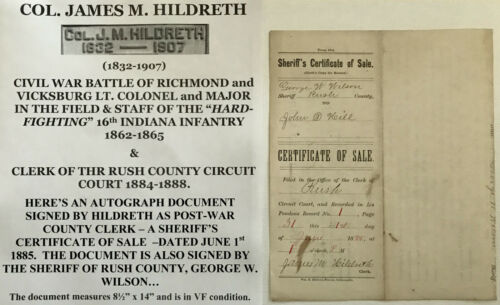 COL. JAMES M. HILDRETH
COL. J. M. HILDRETH
1832 — 1907
(1832-1907)
CIVIL WAR BATTLE OF RICHMOND and
VICKSBURG LT. COLONEL and MAJOR
IN THE FIELD & STAFF OF THE "HARD-
FIGHTING" 16th INDIANA INFANTRY
1862-1865
&
CLERK OF THR RUSH COUNTY CIRCUIT
COURT 1884-1888.
HERE'S AN AUTOGRAPH DOCUMENT
SIGNED BY HILDRETH AS POST-WAR
COUNTY CLERK – A SHERIFF'S
CERTIFICATE OF SALE –DATED JUNE 1st
1885. THE DOCUMENT IS ALSO SIGNED BY
THE SHERIFF OF RUSH COUNTY, GEORGE W.
WILSON…
The document measures 8½" x 14" and is in VF condition.
Sheriff's Certificate of Sale.
George W Wilson
Sheriff Rush County,
TO
John D Hill
CERTIFICATE OF SALE.
Filed in the Office of the Clerk of
Rush
Circuit Court, and Recorded in Lis
Pendens Record No. 1, Page
31 this 1st day
of June 1885, at
1 o'clock P M
James M Hildreth
Clerk.